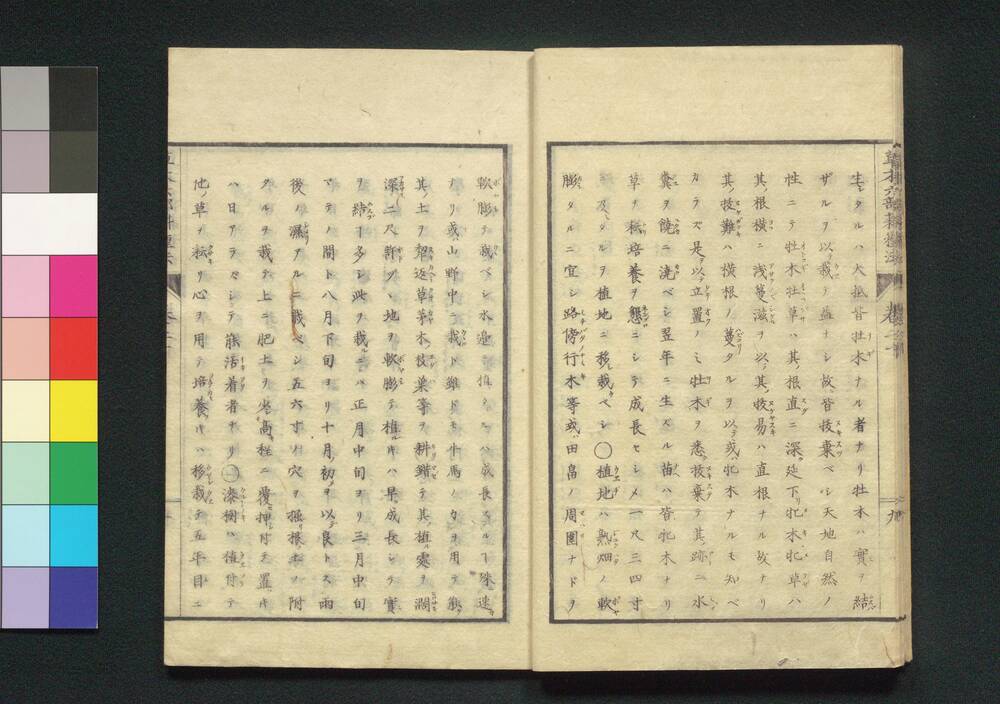 生シタルハ大抵皆牡木ナル者ナリ牡木ハ實ヲ結
ザルヲ以テ栽テ益ナシ故ニ皆抜棄ベシ天地自然ノ
性ニテ牡木牡草ハ其根直ニ深ク延下リ牝木牝草ハ
其根横ニ浅ク蔓滋ヲ以ノ其抜易ハ直根ナル故ナリ
其抜難ハ横根ノ蔓タルヲ以テ或ハ牝木ナルモ知ベ
カラズ是ヲ以テ立置ノミ牡木ヲ悉ク抜棄テ其跡ニ水
糞ヲ饒ニ澆ベシ翌年ニ生ズル苗ハ皆牝木ナリ
草ヲ耘培養ヲ懇ニシテ成長セシメ一尺三四寸
ニ及タルヲ植地ニ移シ栽ベシ〇植地ハ熟畑ノ軟
膨タルニ宜シ路傍行木等或ハ田畠ノ周圍ナドヲ
軟膨テ栽ベシ水邉ニ植タルハ成長スルㄱ殊ニ速
ナリ或ハ山野中ニ栽ト雖ドモ牛馬ノ力ヲ用テ
其土ヲ犂返草茅木ノ枝葉等ヲ耕錯テ其植ル處ヲ濶
深ニ尺許ツヽ地ヲ軟膨テ植ルキハ早ク成長シテ實
ヲ結ㄱ多シ此ヲ栽ルニハ正月中旬ヨリ三月中旬
マテノ間ト八月下旬ヨリ十月初ヲ以テ良トス雨
後ノ濕アルニ栽ベシ五六寸ノ穴ヲ掘リ根土ノ附
タルヲ栽テ上ニ肥土ヲ高程ニ覆押付テ置キ
ハ日アラズシテ活着者ナリ〇漆樹ハ植付テ
他ノ草ヲ耘リ心ヲ用テ培養キハ移栽テ五年目ニ
草木六部耕種法
卷二十
九